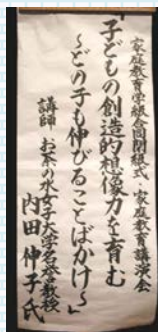 家庭教育学級合同閉級式・家庭教育講演会
「子どもの創造的想像力を育む
～どの子も伸びることばかけ～」
講師 お茶の水女子大学名誉教授
内田伸子氏